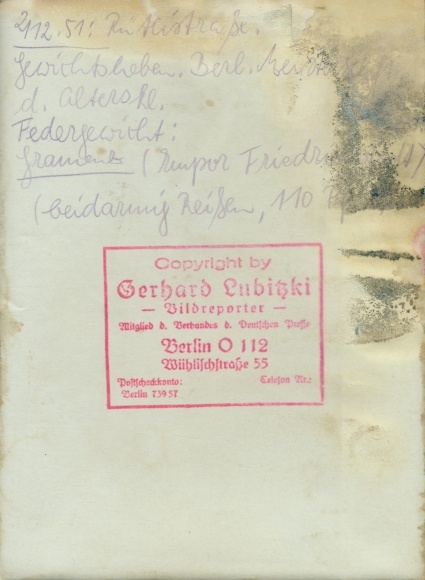 2.12.51: Rütlistraße.
Gewichtheben. Berl.
d. Alterskl.
Federgewicht:
(Empor
(beidarmig Reißen, 110
Copyright by
Gerhard Lubitzki
— Bildreporter —
Mitglied d. Verbandes d. Deutschen Presse
Berlin O 112
Wühlischstraße 55
Postscheckkonto: Telefon Nr.:
Berlin 739 57